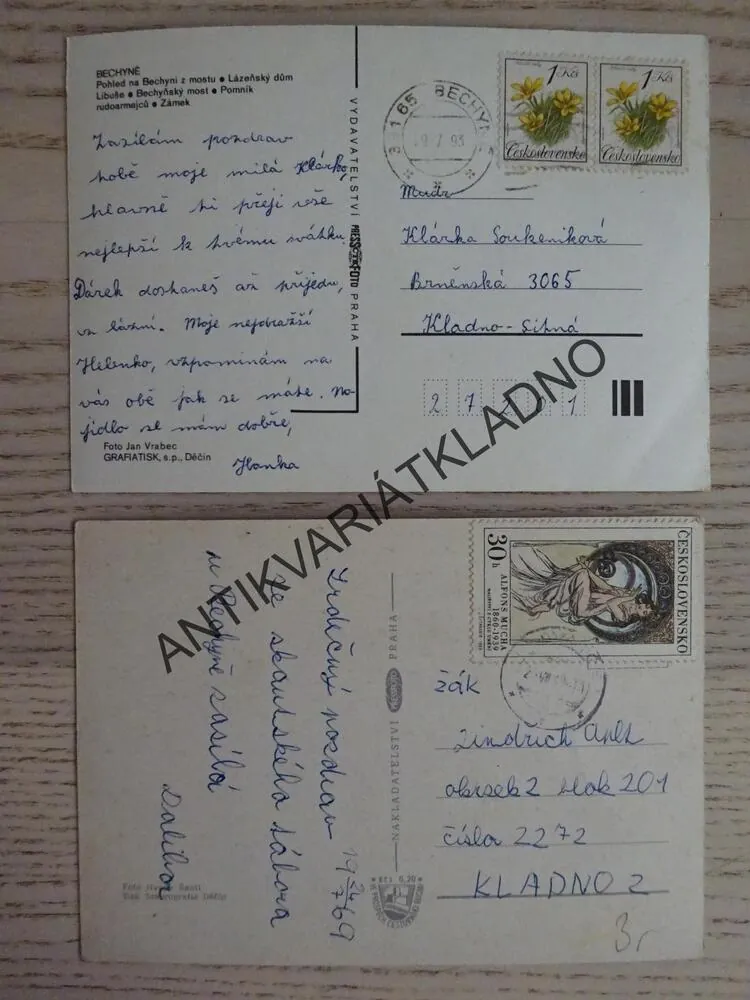 BECHYNĚ
Pohled na Bechyni z mostu ● Lázeňský dům
Libuše ● Bechyňský most ● Pomník
rudoarmejců ● Zámek
Zasílám pozdrav
tobě moje milá Klárko,
hlavně ti přeji vše
nejlepší k tvému svátku.
Dárek dostaneš až přijedu,
z lázní. Moje nejdražší
Helenko, vzpomínám na
vás obě jak se máte. No
jídlo se mám dobře,
Hanka
Foto Jan Vrabec
GRAFIATISK, s.p., Děčín
VYDAVATELSTVÍ PRESSFOTO PRAHA
391 65 BECHYNĚ
93
1 Kčs
Československo
1 Kčs
Československo
Klárka Soukeniková
Brněnská 3065
Kladno-Sítná
ANTIKVARIÁTKLADNO
ČESKOSLOVENSKO
30 h
ALFONS MUCHA
1860-1939
Srdečný pozdrav
ze skautského tábora
u Bechyně zasílá
Dalibor
19 24/7 69
NAKLADATELSTVÍ PRAHA
Kčs 0,20
žák
Jindřich
okrsek 2 blok 201
číslo 2272
KLADNO 2
3,-